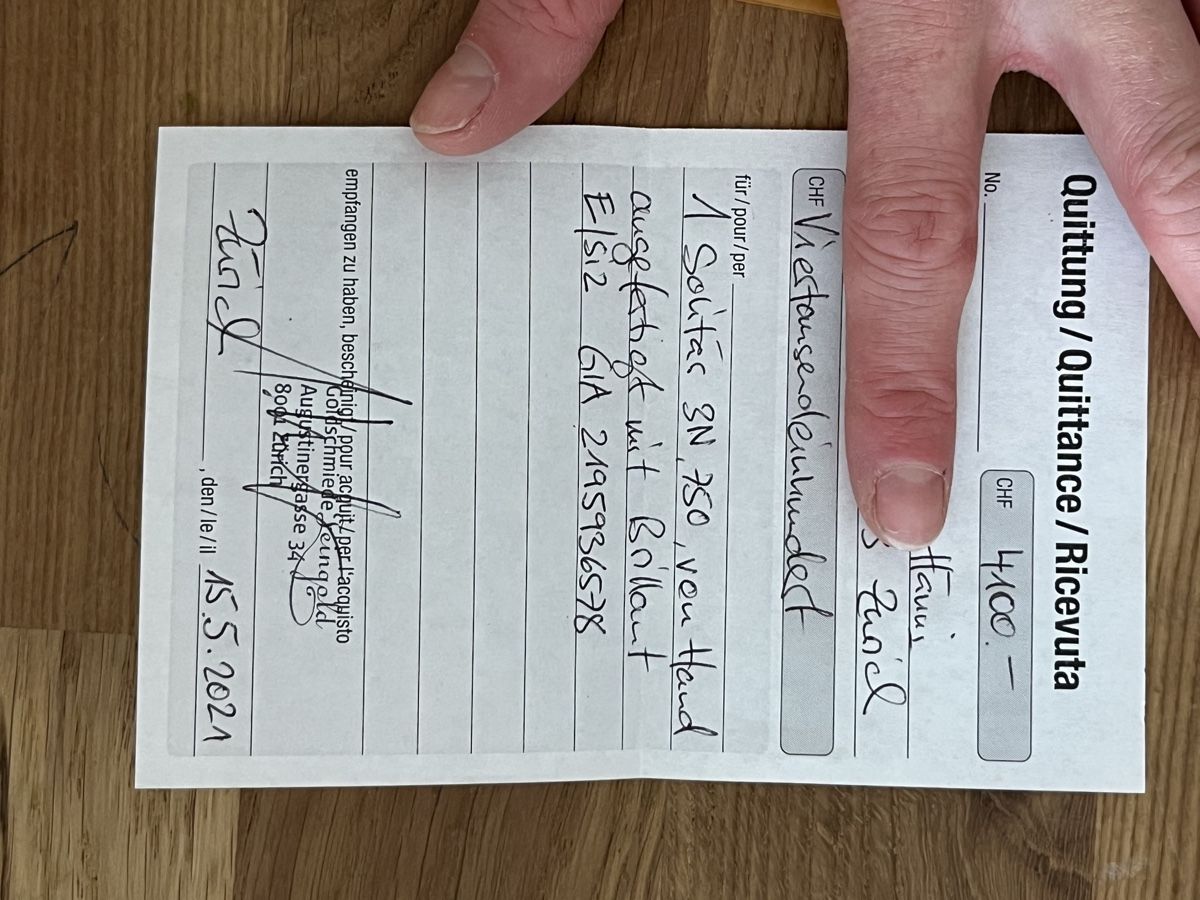 Quittung / Quittance / Ricevuta
No.
CHF 4100.—
Hannis
Zürich
CHF Viertausendeinhundert
für / pour / per
1 Solitär 3N, 750, von Hand
angefertigt mit Brillant
E/Si2 GIA 2195936578
empfangen zu haben, bescheinigt / pour acquit / per l'acquisto
Goldschmiede Feingold
Augustinergasse 34
8001 Zürich
Zürich, den / le / il 15.5.2021